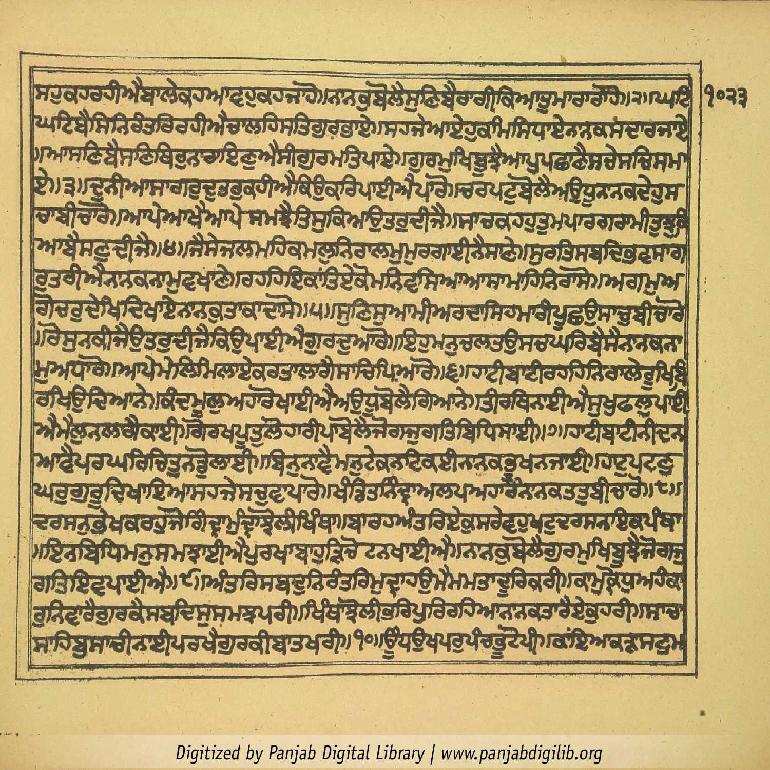 ਸਹੁਕਹਰਹੀਐਬਾਲੇਕਹਆਵਹੁਕਹਜਾਹੋ॥ਨਾਨਕੁਬੋਲੈਸੁਣਿਬੈਰਾਗੀਕਿਆਤੁਮਾਰਾਰਾਹੋ॥੨॥ਘਟਿ
੧੦੨੩
ਘਟਿਬੈਸਿਨਿਰੰਤਰਿਰਹੀਐਚਾਲਹਿਸਤਿਗੁਰਭਾਏ॥ਸਹਜੇਆਏਹੁਕਮਿਸਿਧਾਏਨਾਨਕਸਦਾਰਜਾਏ
॥ਆਸਣਿਬੈਸਣਿਥਿਰੁਨਾਰਾਇਣੁਐਸੀਗੁਰਮਤਿਪਾਏ॥ਗੁਰਮੁਖਿਬੂਝੈਆਪੁਪਛਾਣੈਸਚੇਸਚਿਸਮਾ
ਏ॥੩॥ਦੁਨੀਆਸਾਗਰੁਦੁਤਰੁਕਹੀਐਕਿਉਕਰਿਪਾਈਐਪਾਰੋ॥ਚਰਪਟੁਬੋਲੈਅਉਧੂਨਾਨਕਦੇਹੁਸ
ਚਾਬੀਚਾਰੋ॥ਆਪੇਆਖੈਆਪੇਸਮਝੈਤਿਸੁਕਿਆਉਤਰੁਦੀਜੈ॥ਸਾਚਕਹਹੁਤੁਮਪਾਰਗਰਾਮੀਤੁਝੁਕਿ
ਆਬੈਸਣੁਦੀਜੈ॥੪॥ਜੈਸੇਜਲਮਹਿਕਮਲੁਨਿਰਾਲਮੁਮੁਰਗਾਈਨੈਸਾਣੇ॥ਸੁਰਤਿਸਬਦਿਭਵਸਾਗ
ਰੁਤਰੀਐਨਾਨਕਨਾਮੁਵਖਾਣੇ॥ਰਹਹਿਇਕਾਂਤਿਏਕੋਮਨਿਵਸਿਆਆਸਾਮਾਹਿਨਿਰਾਸੋ॥ਅਗਮੁਅ
ਗੋਚਰੁਦੇਖਿਦਿਖਾਏਨਾਨਕੁਤਾਕਾਦਾਸੋ॥੫॥ਸੁਣਿਸੁਆਮੀਅਰਦਾਸਿਹਮਾਰੀਪੂਛਉਸਾਚੁਬੀਚਾਰੋ
॥ਰੋਸੁਨਕੀਜੈਉਤਰੁਦੀਜੈਕਿਉਪਾਈਐਗੁਰਦੁਆਰੋ॥ਇਹੁਮਨੁਚਲਤਉਸਚਘਰਿਬੈਸੈਨਾਨਕਨਾ
ਮੁਅਧਾਰੋ॥ਆਪੇਮੇਲਿਮਿਲਾਏਕਰਤਾਲਾਗੈਸਾਚਿਪਿਆਰੋ॥੬॥ਹਾਟੀਬਾਟੀਰਹਹਿਨਿਰਾਲੇਰੂਖਿਬਿ
ਰਖਿਉਦਿਆਨੇ॥ਕੰਦਮੂਲੁਅਹਾਰੋਖਾਈਐਅਉਧੂਬੋਲੈਗਿਆਨੇ॥ਤੀਰਥਿਨਾਈਐਸੁਖੁਫਲੁਪਾਈ
ਐਮੈਲੁਨਲਾਗੈਕਾਈ॥ਗੋਰਖਪੂਤੁਲੋਹਾਰੀਪਾਬੋਲੈਜੋਗਜੁਗਤਿਬਿਧਿਸਾਈ॥੭॥ਹਾਟੀਬਾਟੀਨੀਦਨ
ਆਵੈਪਰਘਰਿਚਿਤੁਨਡੋੁਲਾਈ॥ਬਿਨੁਨਾਵੈਮਨੁਟੇਕਨਟਿਕਈਨਾਨਕਭੂਖਨਜਾਈ॥ਹਾਟੁਪਟਣੁ
ਘਰੁਗੁਰੂਦਿਖਾਇਆਸਹਜੇਸਚੁਵਾਪਾਰੋ॥ਖੰਡਿਤਨਿੰਦ੍ਰਾਅਲਪਅਹਾਰੰਨਾਨਕਤਤੁਬੀਚਾਰੋ॥੮॥
ਦਰਸਨੁਭੇਖਕਰਹੁਜੋਗਿੰਦ੍ਰਾਮੁੰਦ੍ਰਾਝੋਲੀਖਿੰਥਾ॥ਬਾਰਹਅੰਤਰਿਏਕੁਸਰੇਵਹੁਖਟੁਦਰਸਨਇਕਪੰਥਾ
॥ਇਨਬਿਧਿਮਨੁਸਮਝਾਈਐਪੁਰਖਾਬਾਹੁੜਿਚੋਟਨਖਾਈਐ॥ਨਾਨਕੁਬੋਲੈਗੁਰਮੁਖਿਬੂਝੈਜੋਗਜੁ
ਗਤਿਇਵਪਾਈਐ॥੯॥ਅੰਤਰਿਸਬਦੁਨਿਰੰਤਰਿਮੁਦ੍ਰਾਹਉਮੈਮਮਤਾਦੂਰਿਕਰੀ॥ਕਾਮੁਕ੍ਰੋਧੁਅਹੰਕਾ
ਰੁਨਿਵਾਰੈਗੁਰਕੈਸਬਦਿਸੁਸਮਝਪਰੀ॥ਖਿੰਥਾਝੋਲੀਭਰਿਪੁਰਿਰਹਿਆਨਾਨਕਤਾਰੈਏਕੁਹਰੀ॥ਸਾਚਾ
ਸਾਹਿਬੁਸਾਚੀਨਾਈਪਰਖੈਗੁਰਕੀਬਾਤਖਰੀ॥੧੦॥ਊਂਧਉਖਪਰੁਪੰਚਭੂਟੋਪੀ॥ਕਾਂਇਆਕੜਾਸਣੁਮ
Digitized by Panjab Digital Library | www.panjabdigilib.org